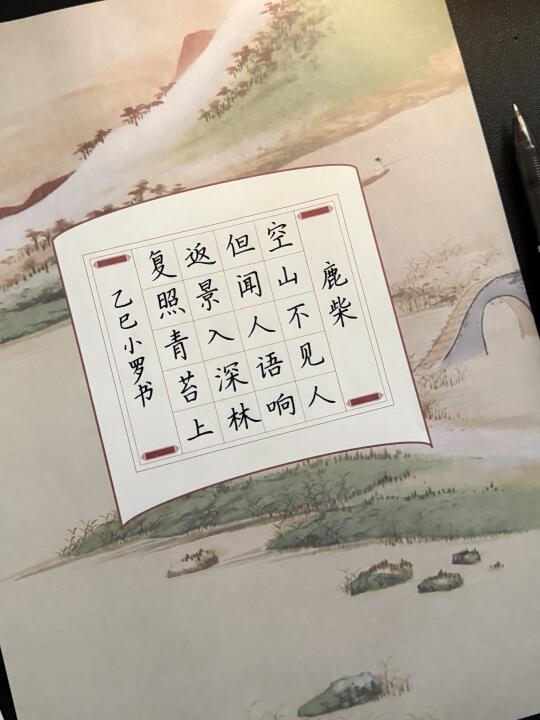 鹿柴
空山不见人
但闻人语响
返景入深林
复照青苔上
乙巳小罗书